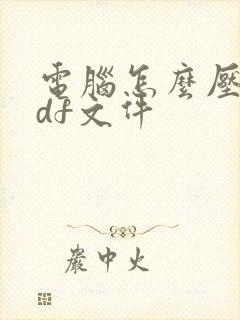 電腦怎麼壓
df文件
嚴中火